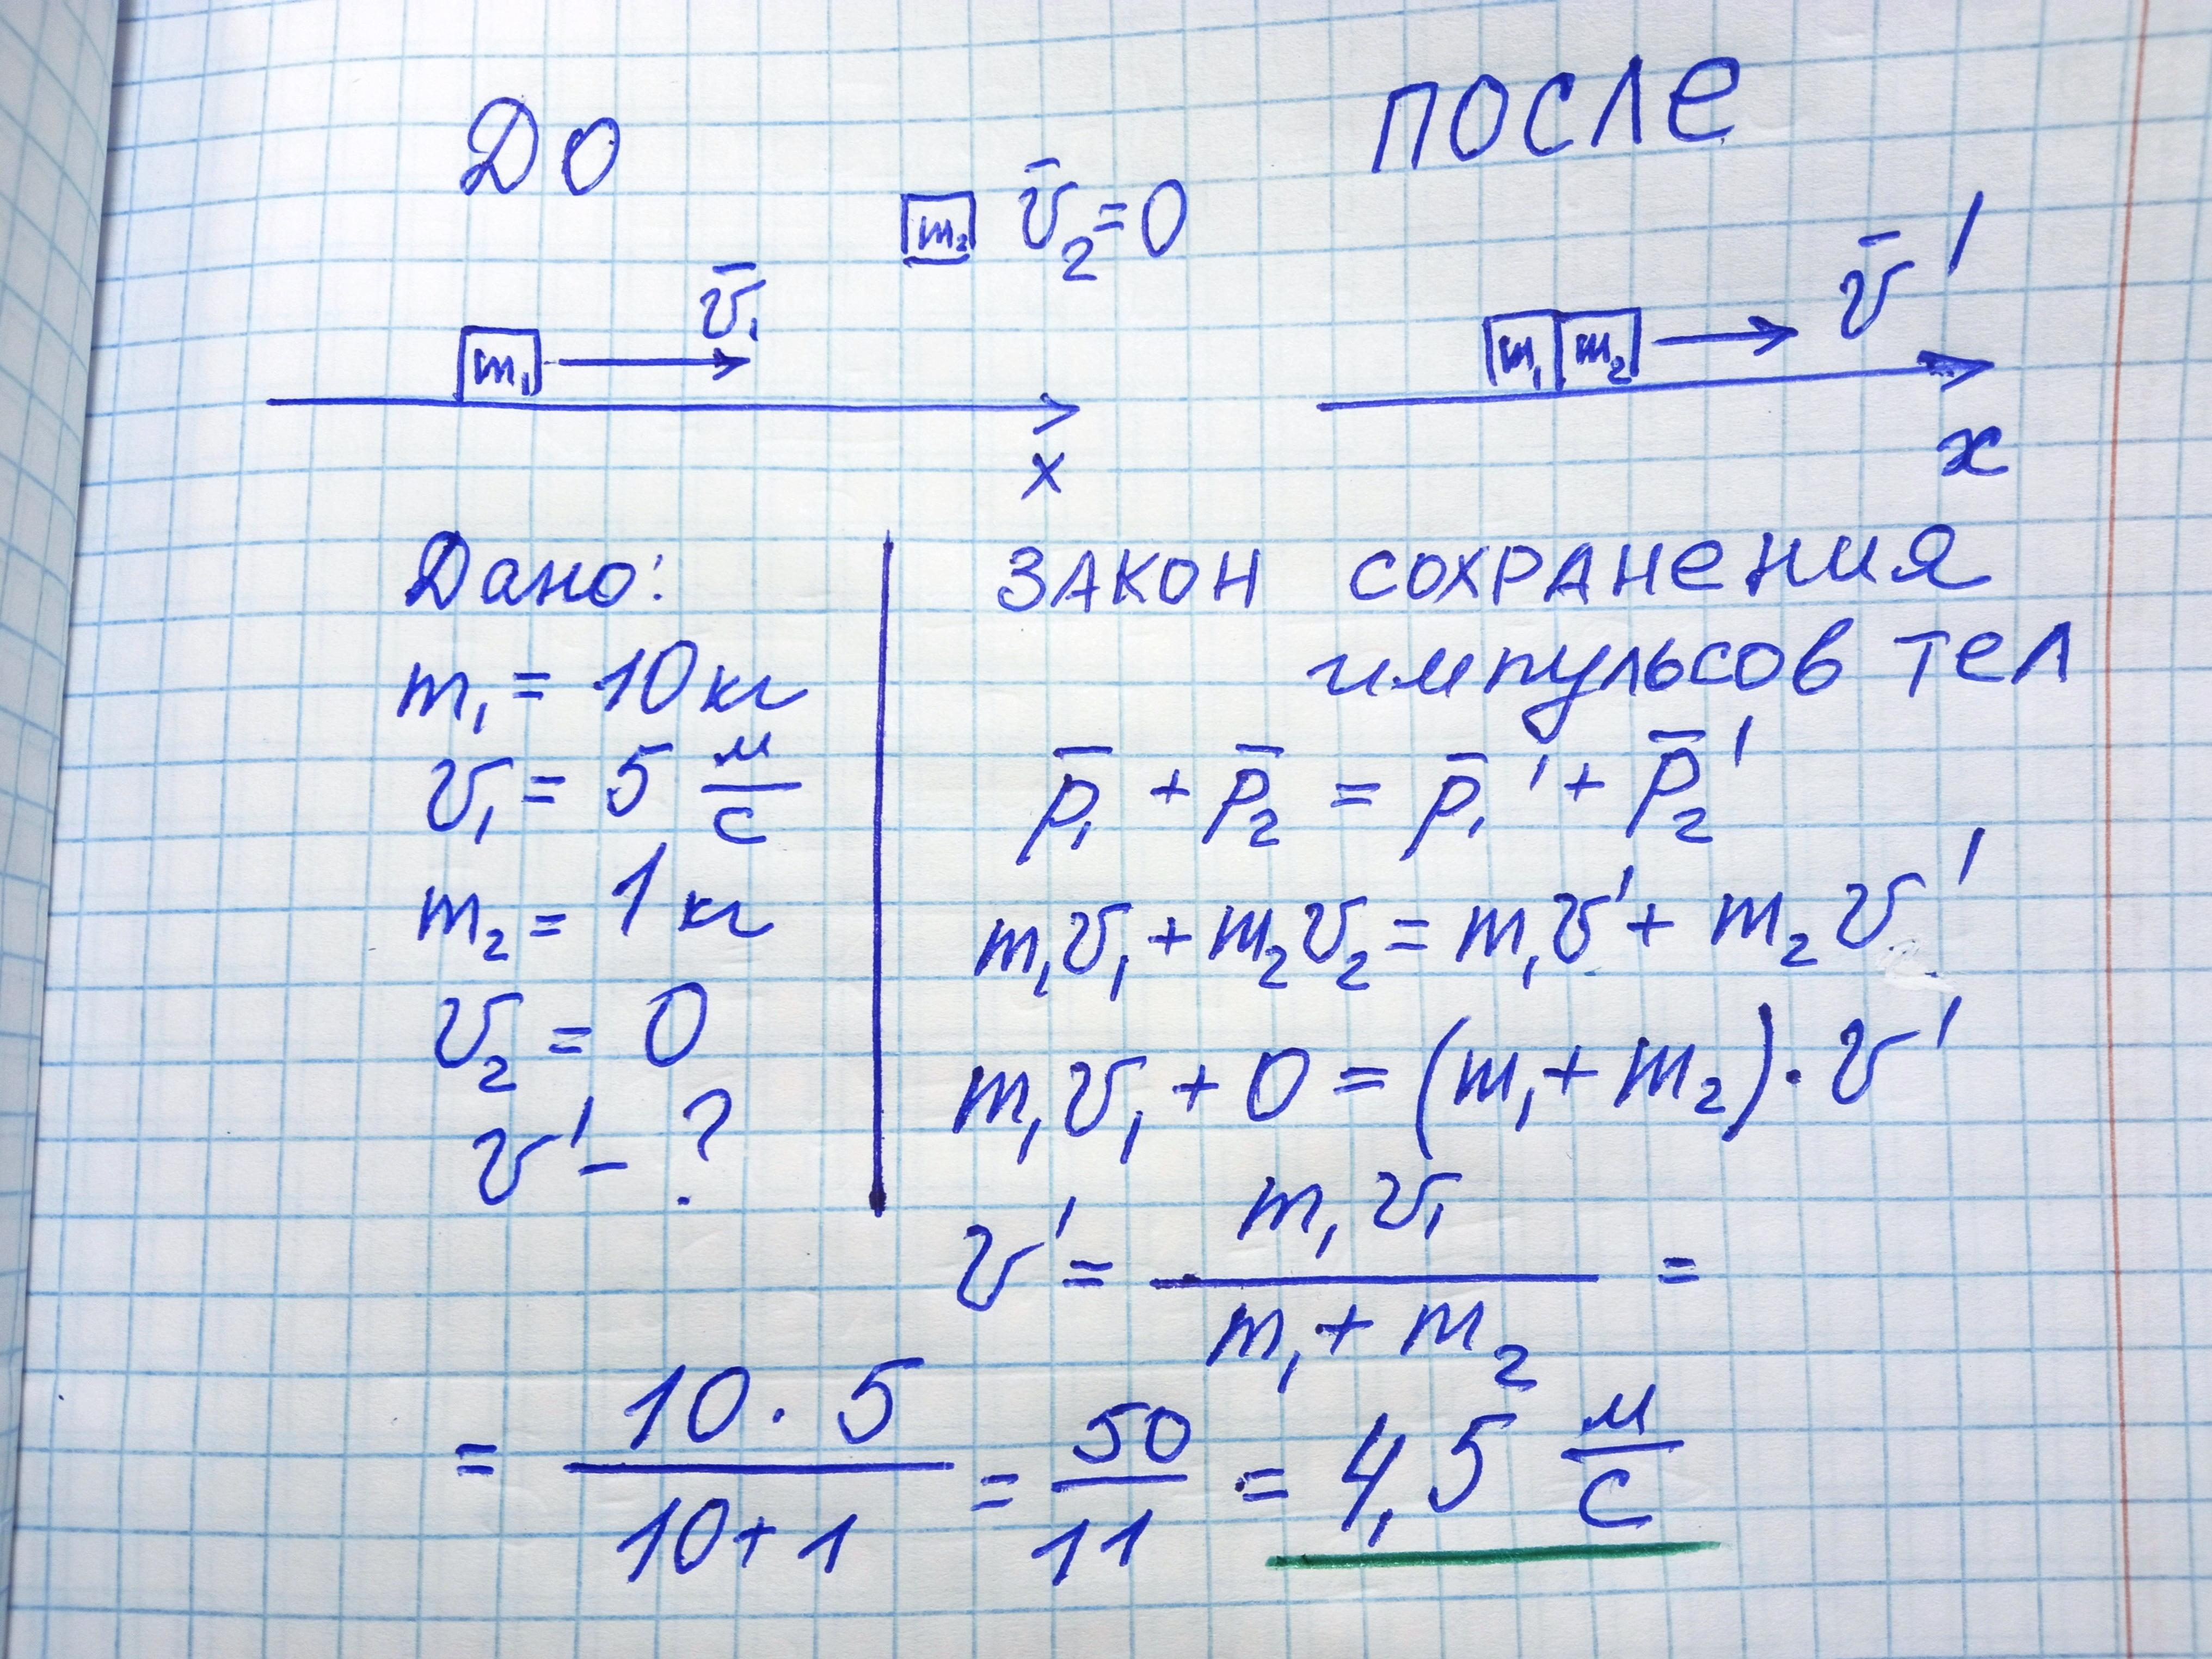 ДО
ПОСЛЕ
m₂ v̄₂=0
v̄₁
v̄′
m₁
m₁ m₂
x
x
Дано:
m₁ = 10 кг
v₁ = 5 м/с
m₂ = 1 кг
v₂ = 0
v′ - ?
ЗАКОН СОХРАНЕНИЯ
импульсов тел
p̄₁ + p̄₂ = p̄₁′ + p̄₂′
m₁v₁ + m₂v₂ = m₁v′ + m₂v′
m₁v₁ + 0 = (m₁ + m₂) · v′
v′ = m₁v₁ / m₁ + m₂ =
= 10 · 5 / 10 + 1 = 50 / 11 = 4,5 м/с